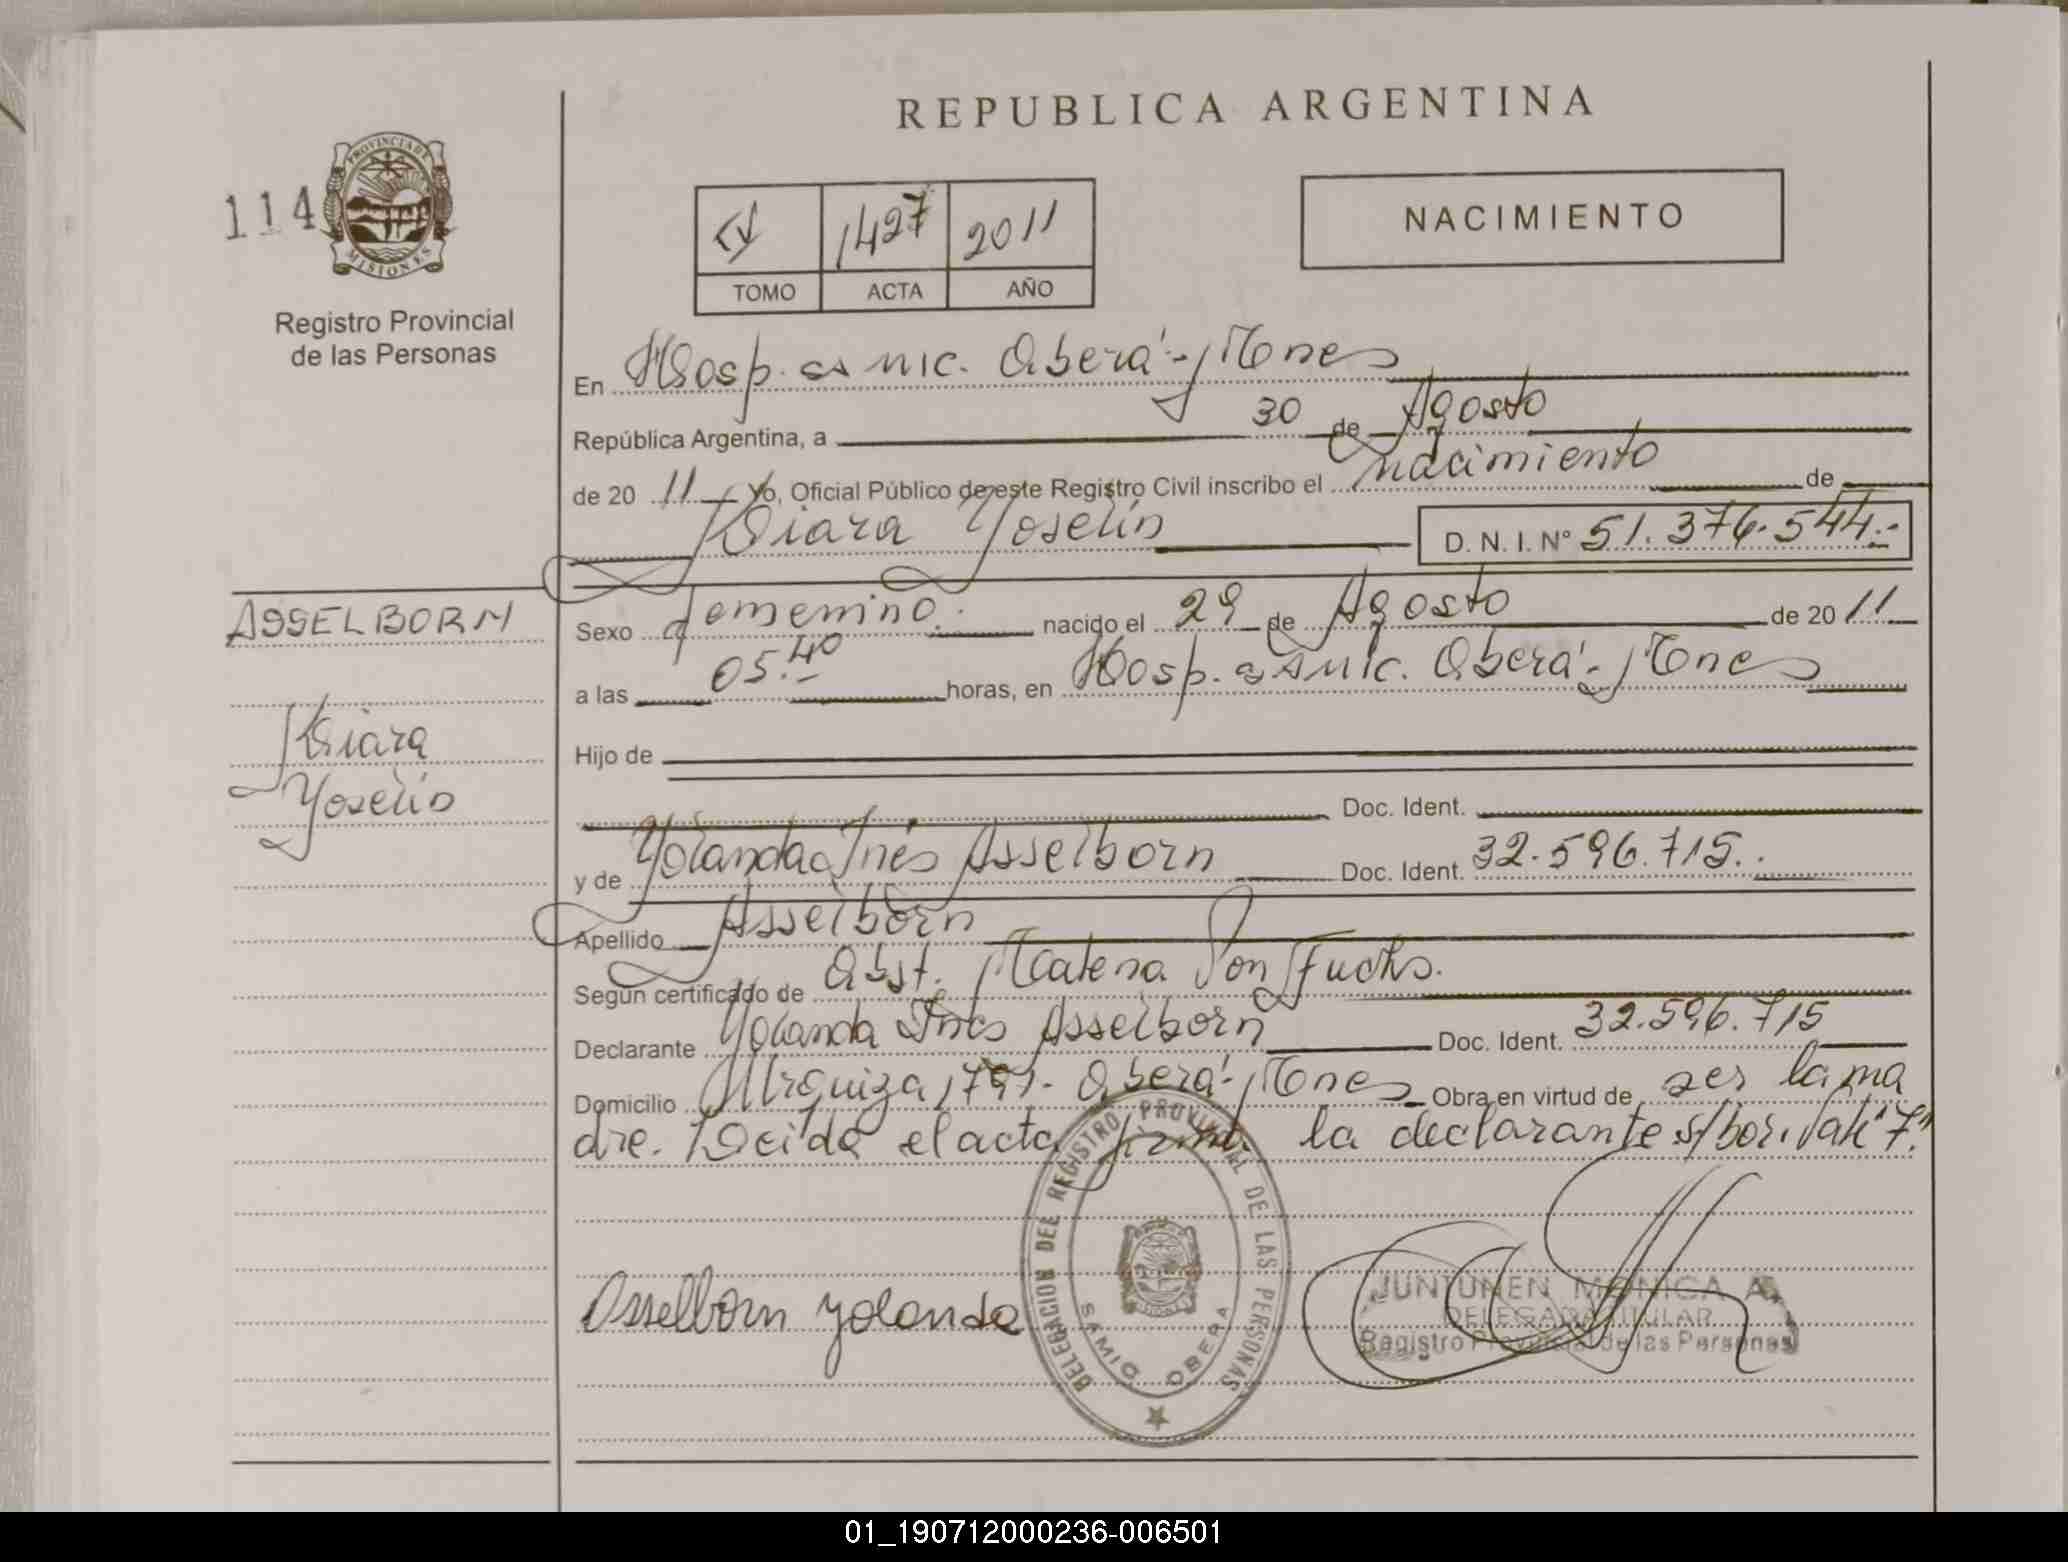 REPUBLICA ARGENTINA
114
PROVINCIA DE
MISIONES
Registro Provincial
de las Personas
1427 2011
TOMO ACTA AÑO
NACIMIENTO
En Hosp. Oberá - Mnes
República Argentina, a 30 de Agosto
de 2011 Yo, Oficial Público de este Registro Civil inscribo el nacimiento de
Kiara Yoselin D. N. I. Nº 51.376.544.-
ASSELBORN
Kiara
Yoselin
Sexo femenino. nacido el 29 de Agosto de 2011
a las 05.40 horas, en Hosp. Oberá - Mnes
Hijo de
Doc. Ident.
y de Yolanda Inés Asselborn Doc. Ident. 32.596.715.
Apellido Asselborn
Según certificado de Obst. Von Fuchs.
Declarante Yolanda Inés Asselborn Doc. Ident. 32.596.715
Domicilio Urquiza Oberá - Mnes Obra en virtud de ser la ma
dre. Leida el acta firma la declarante
DELEGACION DEL REGISTRO PROVINCIAL DE LAS PERSONAS
SAMIC OBERA
Asselborn Yolanda
JUNTUNEN MONICA A.
DELEGADA TITULAR
Registro Provincial de las Personas
01_190712000236-006501